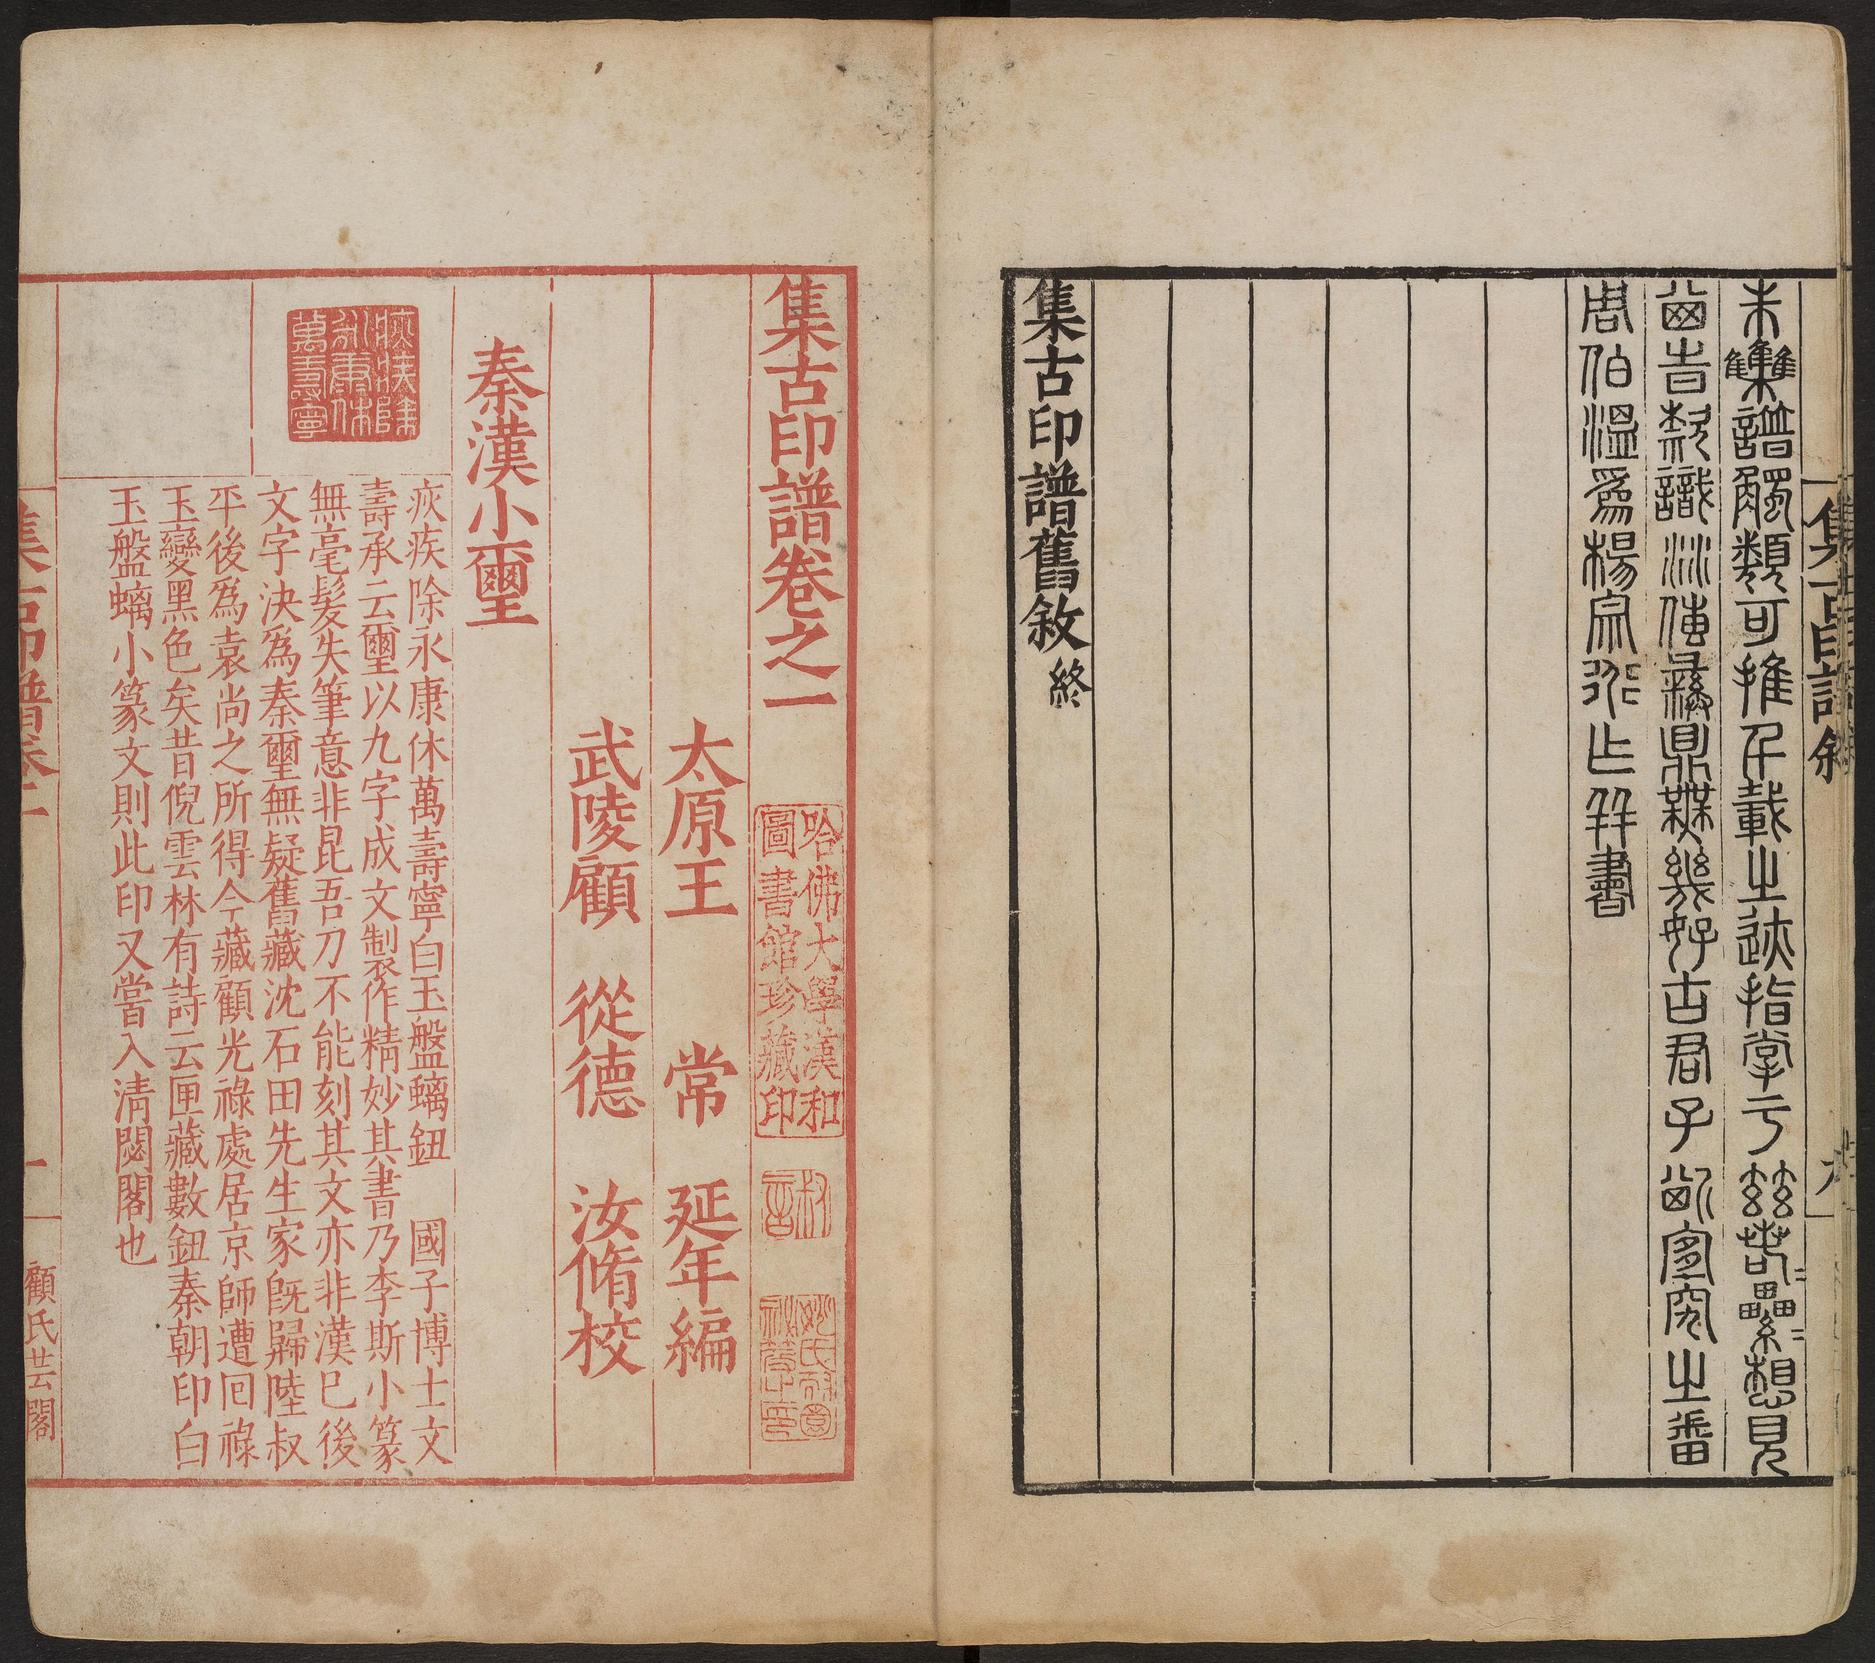 未雧譜觸類可推千載之迹指掌亏茲若若纍纍想見
當昔款識流傳彝鼎鞢幾好古君子必審究之番
周伯溫為楊宗道作並書
集古印譜舊敘終
集古印譜卷之一
哈佛大學漢和
圖書館珍藏印
太原王 常 延年編
武陵顧 從德 汝脩校
秦漢小璽
疢疾除
永康休
萬壽寧
疢疾除永康休萬壽寧白玉盤螭鈕 國子博士文
壽承云璽以九字成文製作精妙其書乃李斯小篆
無毫髮失筆意非昆吾刀不能刻其文亦非漢已後
文字決為秦璽無疑舊藏沈石田先生家既歸陸叔
平後為袁尚之所得今藏顧光祿處居京師遭回祿
玉變黑色矣昔倪雲林有詩云匣藏數鈕秦朝印白
玉盤螭小篆文則此印又嘗入清閟閣也
集古印譜卷一
一
顧氏芸閣